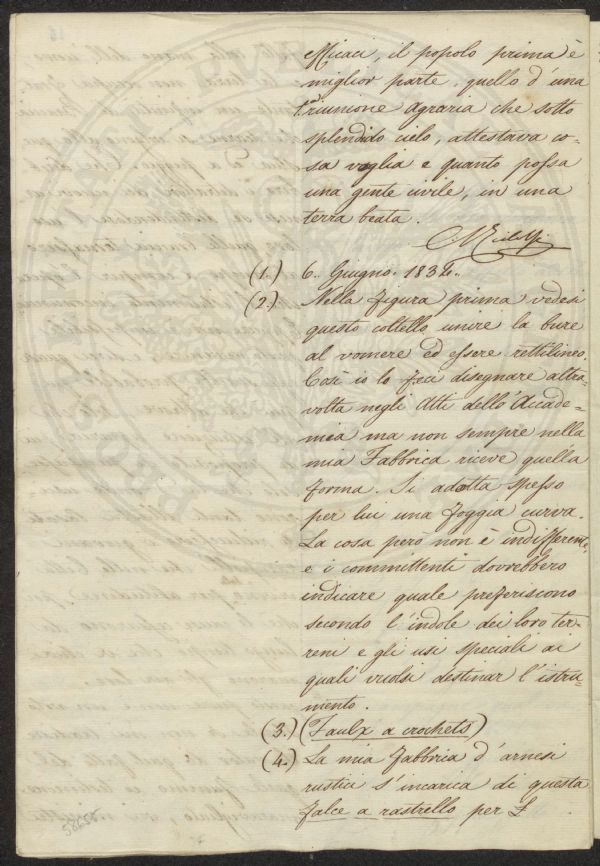 efficaci, il popolo prima è
miglior parte, quello d'una
riunione agraria che sotto
splendido cielo, attestava co=
sa voglia e quanto possa
una gente civile, in una
terra beata.
(1.) 6. Giugno. 1832.
(2.) Nella figura prima vedesi
questo coltello unire la bure
al vomere ed essere rettilineo.
Così io lo feci disegnare altra=
volta negli Atti dell'Accade=
mia ma non sempre nella
mia Fabbrica riceve quella
forma. Si adatta spesso
per lui una foggia curva.
La cosa però non è indifferente,
e i committenti dovrebbero
indicare quale preferiscono
secondo l'indole dei loro ter=
reni e gli usi speciali ai
quali vuolsi destinar l'istru=
mento.
(3.) (Faulx a crochets)
(4.) La mia fabbrica d'arnesi
rustici s'incarica di questa
falce a rastrello per £